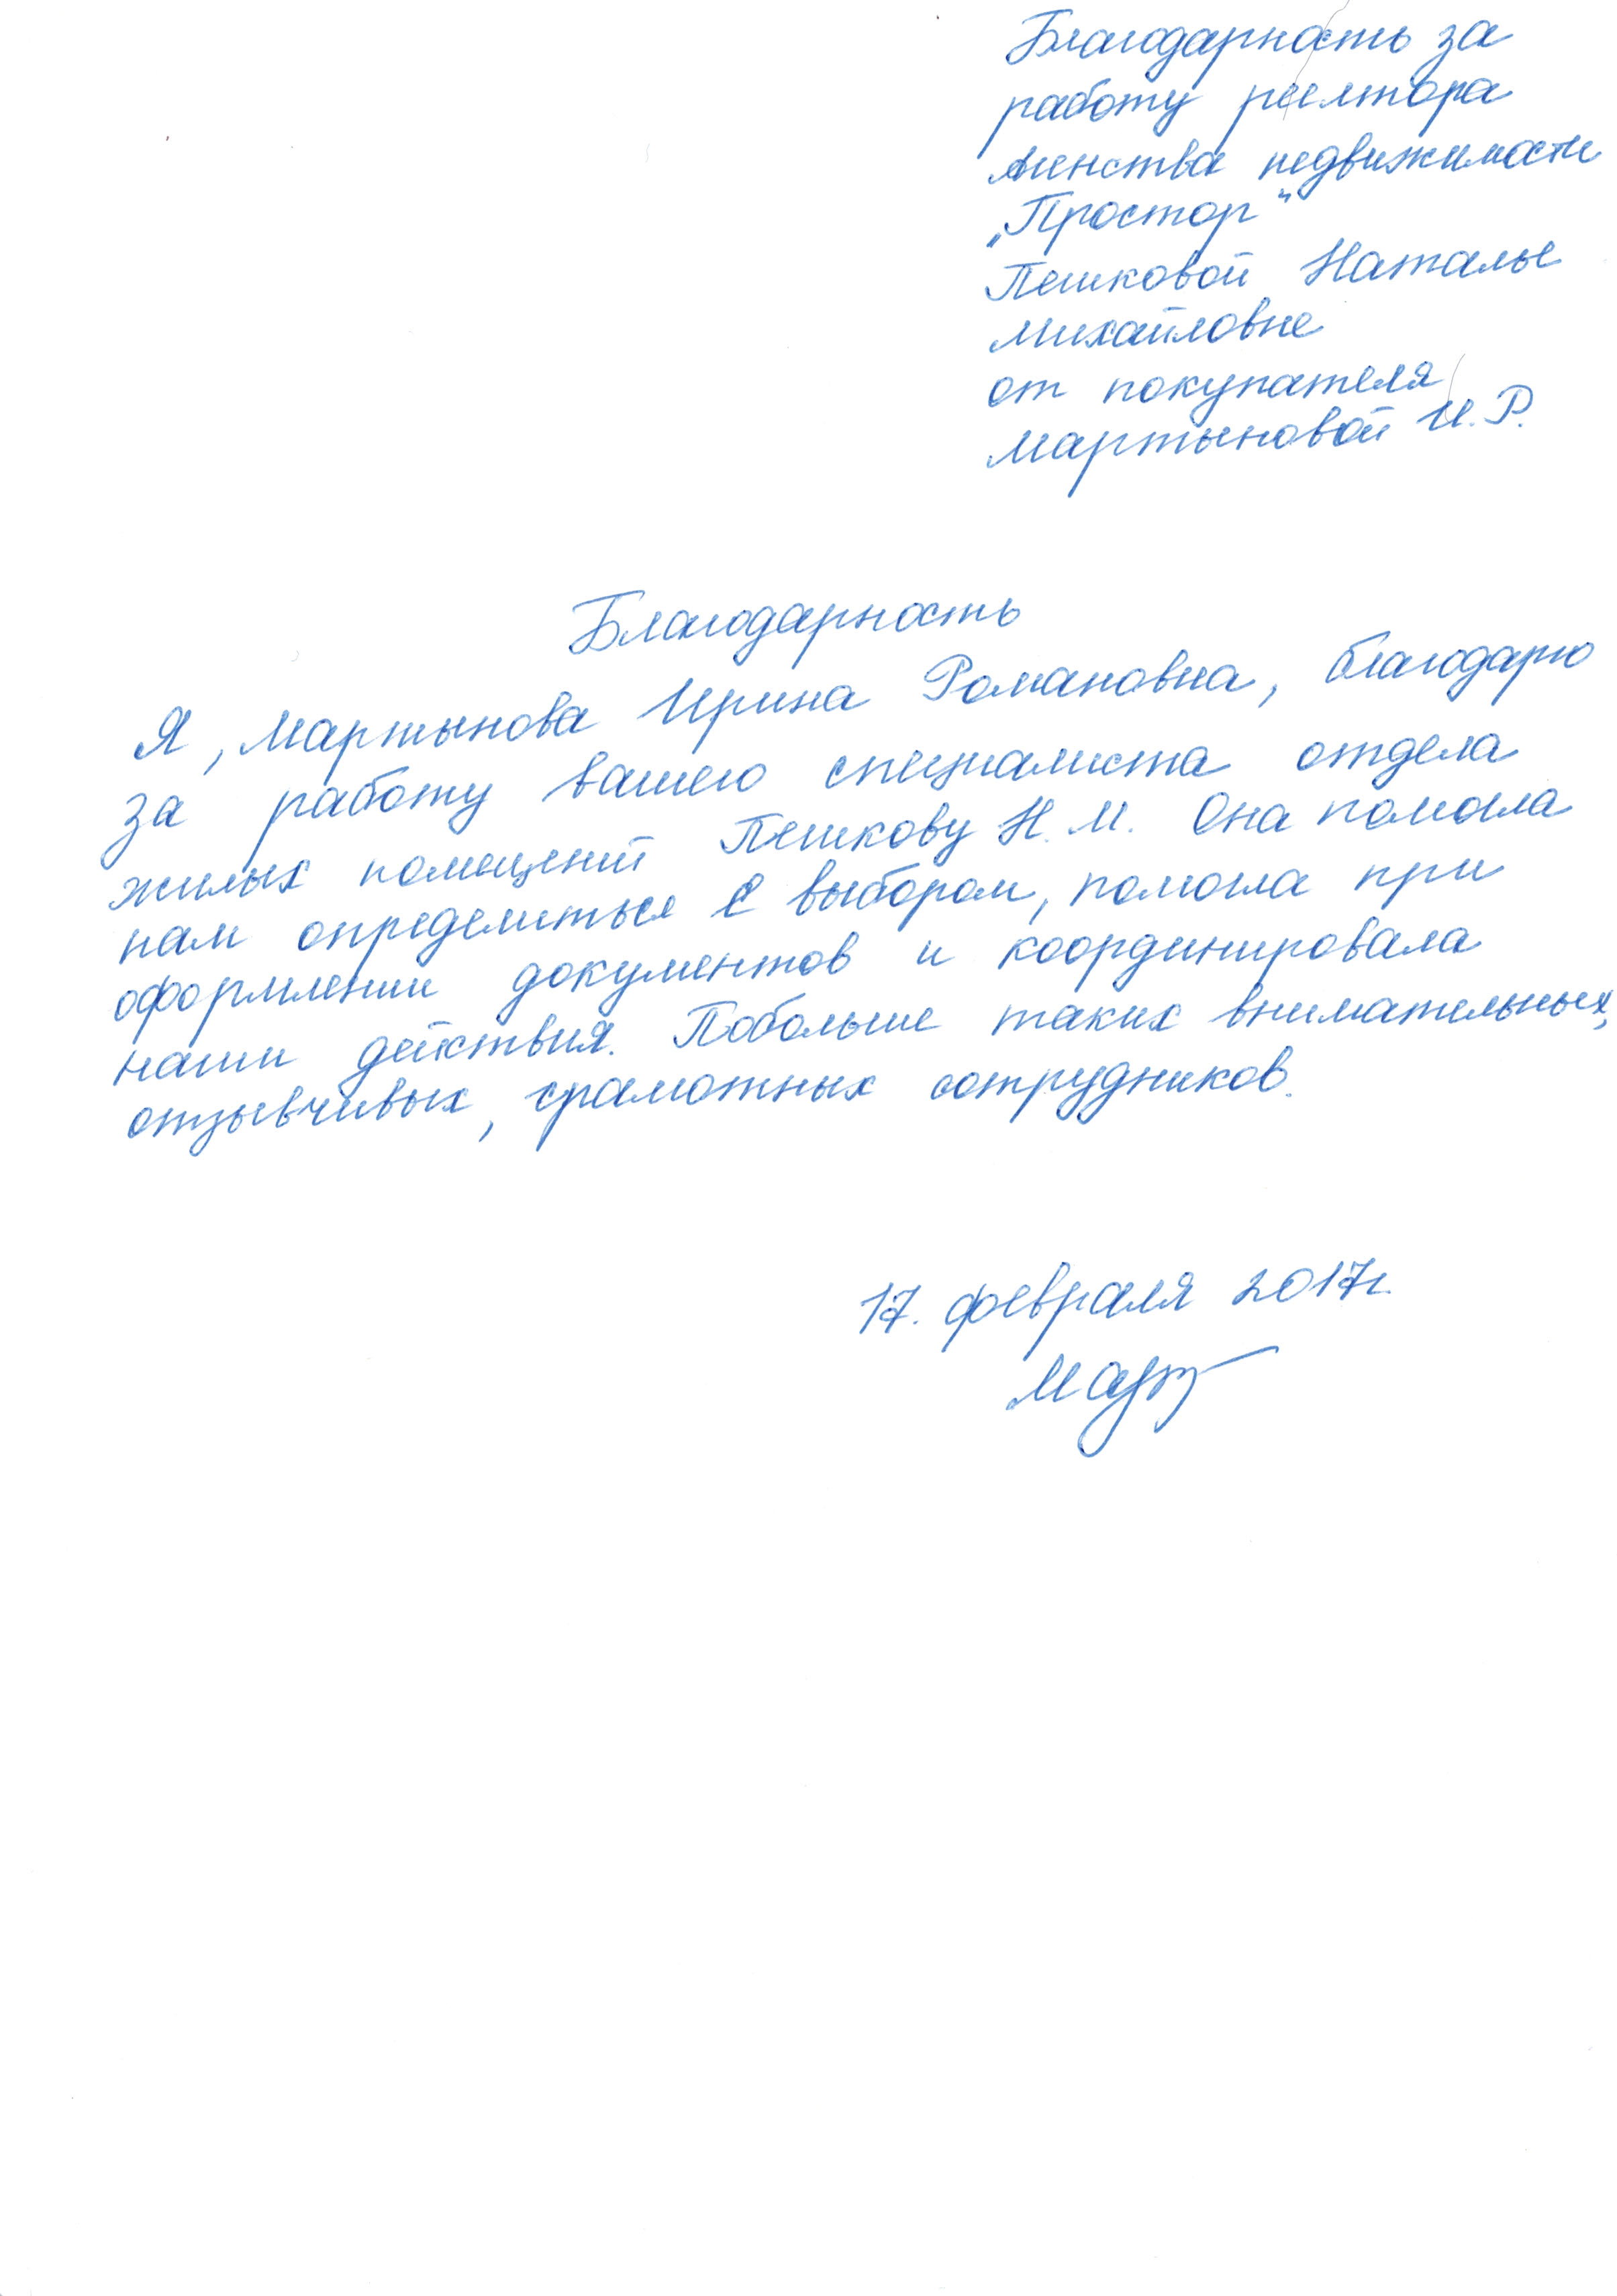 Благодарность за
работу риелтора
Агенства недвижимости
„Простор"
Пешковой Наталье
Михайловне
от покупателя
Мартыновой И.Р.
Благодарность
Я, Мартынова Ирина Романовна, благодарю
за работу вашего специалиста отдела
жилых помещений Пешкову Н.М. Она помогла
нам определиться с выбором, помогла при
оформлении документов и координировала
наши действия. Побольше таких внимательных,
отзывчивых, грамотных сотрудников.
17. февраля 2017г.
Март